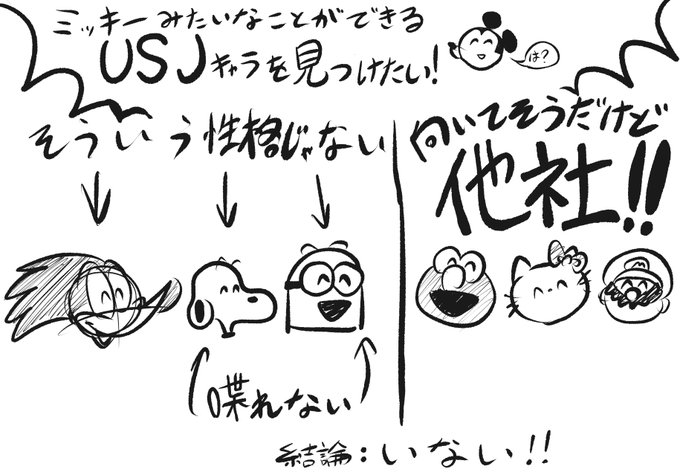 ミッキーみたいなことができる
USJキャラを見つけたい!
は?
そういう性格じゃない
向いてそうだけど
他社!!
喋れない
結論:いない!!